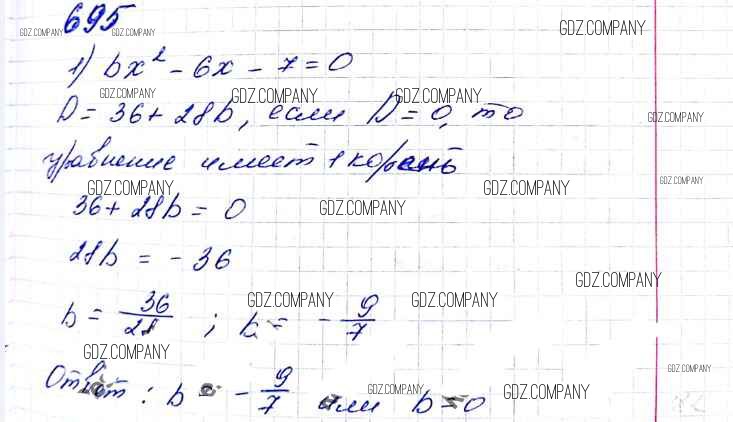 695
GDZ.COMPANY GDZ.COMPANY GDZ.COMPANY
1) bx² - 6x - 7 = 0
GDZ.COMPANY GDZ.COMPANY GDZ.COMPANY
D = 36 + 28b, если D = 0, то
GDZ.COMPANY
уравнение имеет 1 корень
GDZ.COMPANY GDZ.COMPANY GDZ.COMPANY
36 + 28b = 0
GDZ.COMPANY
28b = - 36
GDZ.COMPANY
b = 36/28 ; b = - 9/7
GDZ.COMPANY GDZ.COMPANY
GDZ.COMPANY
GDZ.COMPANY
Ответ: b = - 9/7 или b = 0
GDZ.COMPANY GDZ.COMPANY